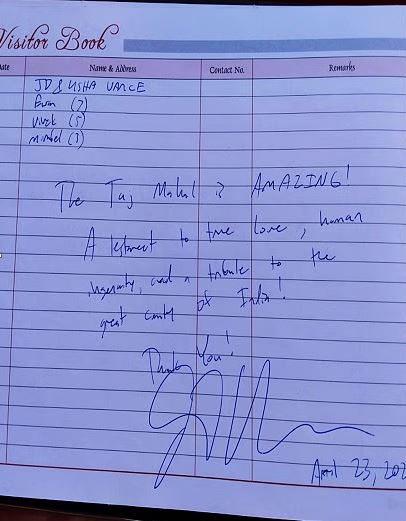 Visitor Book
ate Name & Address Contact No. Remarks
JD & USHA VANCE
Ewan (7)
Vivek (5)
Mirabel (3)
The Taj Mahal is AMAZING!
A testament to true love, human
ingenuity, and a tribute to the
great country of India!
Thank You!
April 23, 202